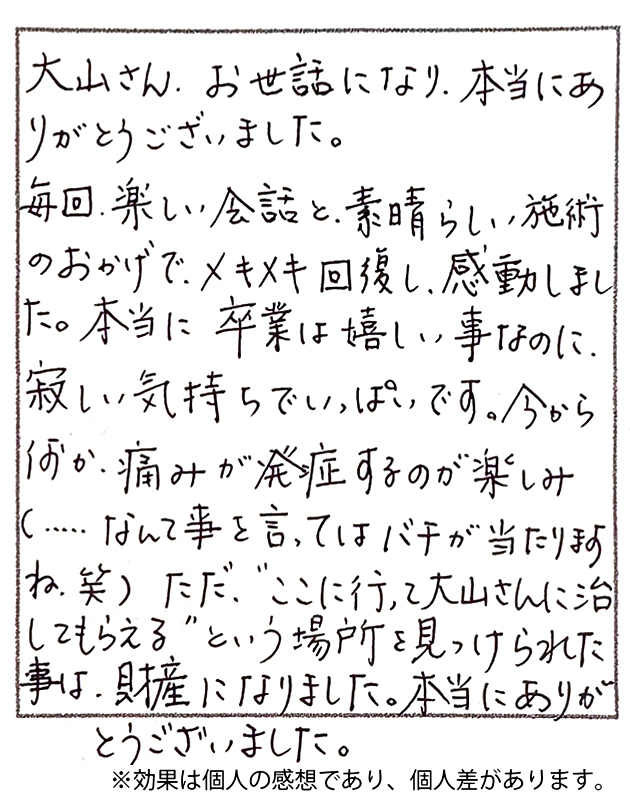 大山さん、お世話になり、本当にあ
りがとうございました。
毎回、楽しい会話と、素晴らしい施術
のおかげで、メキメキ回復し、感動しまし
た。本当に卒業は嬉しい事なのに、
寂しい気持ちでいっぱいです。今から
何か、痛みが発症するのが楽しみ
(‥‥‥なんて事を言ってはバチが当たります
ね、笑) ただ、“ここに行って大山さんに治
してもらえる”という場所を見つけられた
事は、財産になりました。本当にありが
とうございました。
※効果は個人の感想であり、個人差があります。